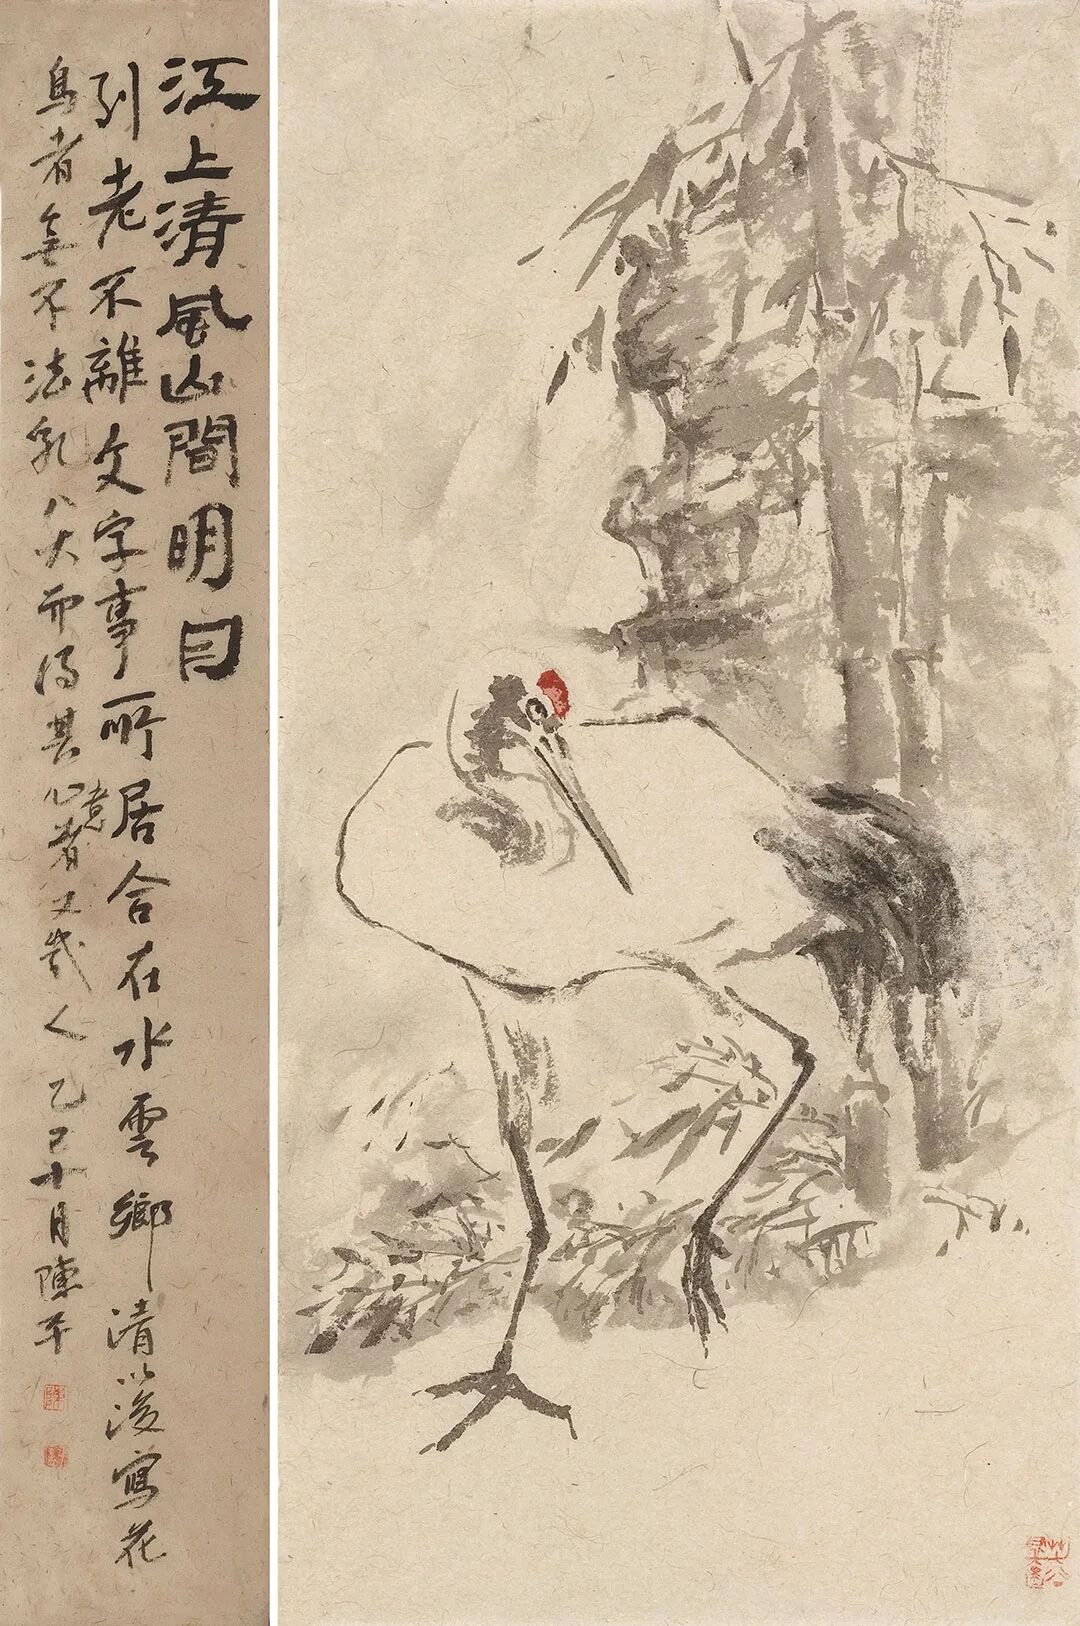 江上清風山間明月
到老不離文字事所居合在水雲鄉清以後寫花
鳥者無不法乳八大而得其心意者又幾人乙巳十月陳平